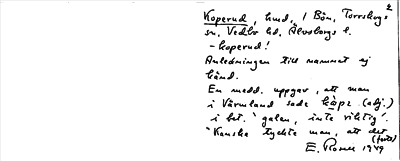 2
Koperud, hmd, i Bön, Torrskogs
sn, Vedbo hd, Älvsborgs l.
-koperud!
Anledningen till namnet ej
känd.
En medd. uppgav, att man
i Värmland sade (adj.)
i bet. "galen, inte riktig".
"Kanske tyckte man, att det
(forts)
E. Rosell 1949